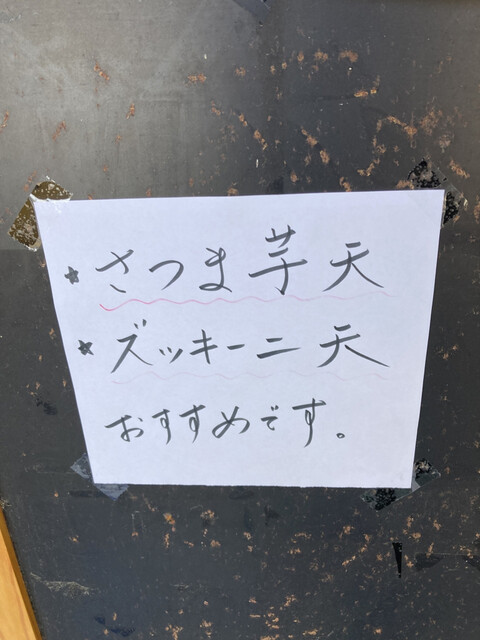 ★さつま芋天
★ズッキーニ天
おすすめです。